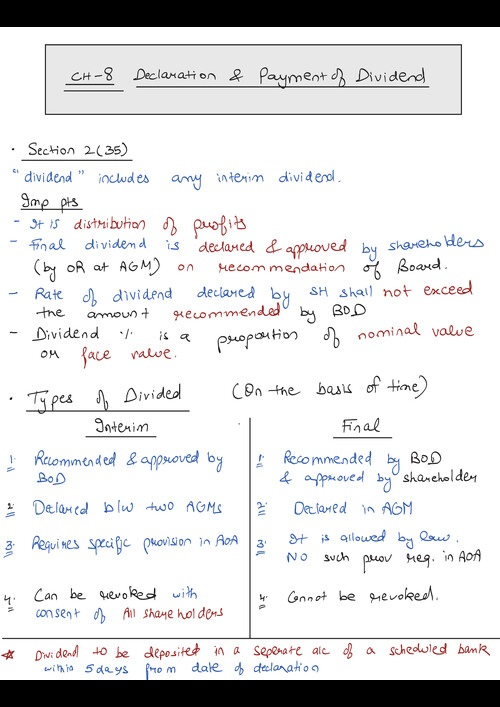 CH-8 Declaration & Payment of Dividend
• Section 2(35)
"dividend" includes any interim dividend.
Imp pts
- It is distribution of profits
- Final dividend is declared & approved by shareholders
(by OR at AGM) on recommendation of Board.
- Rate of dividend declared by SH shall not exceed
the amount recommended by BOD
- Dividend % is a proportion of nominal value
or face value.
• Types of Divided (On the basis of time)
Interim
1. Recommended & approved by
BOD
2. Declared b/w two AGMs
3. Requires specific provision in AOA
4. Can be revoked with
consent of All shareholders
Final
1. Recommended by BOD
& approved by shareholder
2. Declared in AGM
3. It is allowed by law.
NO such prov req. in AOA
4. Cannot be revoked.
* Dividend to be deposited in a seperate a/c of a scheduled bank
within 5 days from date of declaration